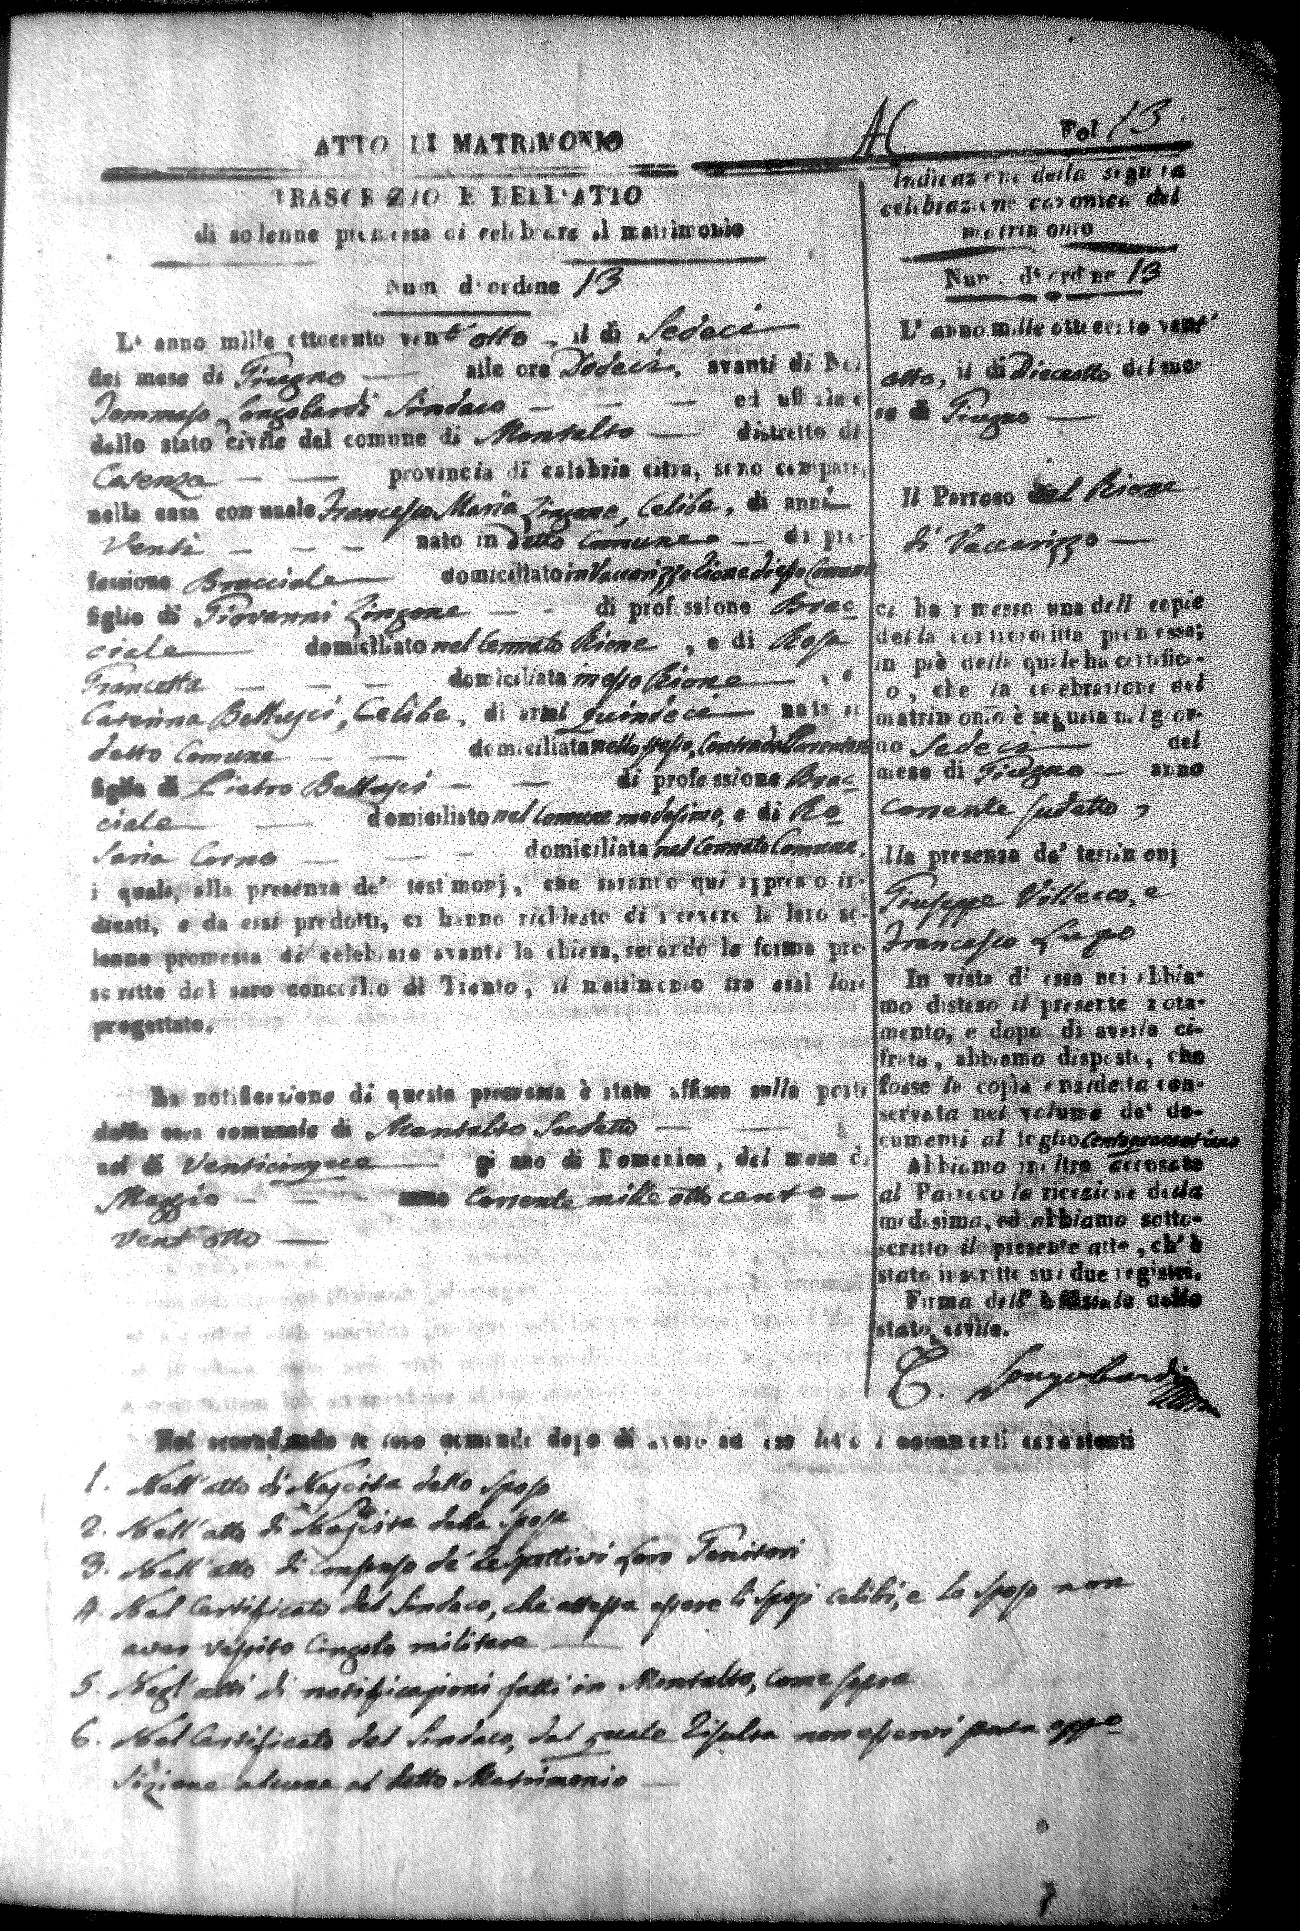 Fol 13
ATTO DI MATRIMONIO
TRASCRIZIONE DELL'ATTO
di solenne promessa di celebrare il matrimonio
Num d'ordine 13
L'anno mille ottocento vent'otto, il dì Sedeci
del mese di Giugno alle ore Dodeci, avanti di Noi
Tommaso Longobardi Sindaco ed uffiziale
dello stato civile del comune di Montalto distretto di
Cosenza provincia di calabria citra, sono comparsi
nella casa comunale Francesco Maria Zingone, Celibe, di anni
Venti nato in detto Comune di pro-
fessione Bracciale domiciliato in Vaccarizzo Rione di esso Comune
figlio di Giovanni Zingone di professione Brac-
ciale domiciliato nel Cennato Rione, e di Rosa
domiciliata in esso Rione, e
Caterina Bellusci, Celibe, di anni quindeci nata in
detto Comune domiciliata nello stesso,
figlia di Pietro Bellusci di professione Brac-
ciale domiciliato nel Comune medesimo, e di Ro-
saria Corno domiciliata nel Cennato Comune,
i quali, alla presenza de' testimonj, che saranno qui appresso in-
dicati, e da essi prodotti, ci hanno richiesto di ricevere la loro so-
lenne promessa di celebrare avanti la chiesa, secondo le forme pre-
scritte dal sacro concilio di Trento, il matrimonio tra essi loro
progettato.
La notificazione di questa promessa è stata affissa sulla porta
della casa comunale di Montalto Sudetto
nel dì Venticinque giorno di Domenica, del mese di
Maggio anno Corrente mille ottocento
vent'otto
Indicazione della seguita
celebrazione canonica del
matrimonio
Num. d'ordine 13
L'anno mille ottocento vent'
otto, il dì Dieciotto del me-
se di Giugno
Il Parroco del Rione
di Vaccarizzo
ci ha rimesso una delle copie
della controscritta promessa;
in piè della quale ha certifica-
to, che la celebrazione del
matrimonio è seguita nel gior-
no Sedeci del
mese di Giugno anno
corrente sudetto,
alla presenza de' testimonj
Giuseppe Vollecco, e
Francesco Lupo
In vista di essa noi abbia-
mo disteso il presente nota-
mento, e dopo di averla ci-
frata, abbiamo disposto, che
fosse la copia anzidetta con-
servata nel volume de' do-
cumenti al foglio
Abbiamo inoltre accusato
al Parroco la ricezione della
medesima, ed abbiamo sotto-
scritto il presente atto, ch'è
stato inscritto sui due registri.
Firma dell'uffiziale dello
stato civile.
T. Longobardi
Noi secondando le loro domande dopo di avere ad essi letti i documenti consistenti
1. Nell'atto di Nascita dello Sposo
2. Nell'atto di Nascita della Sposa
3. Nell'atto di consenso de' respettivi loro Genitori
4. Nel Certificato del Sindaco, che attesta essere li Sposi celibi, e lo sposo non
aver vestito Cingolo militare
5. Negl'atti di notificazioni fatti in Montalto, come sopra
6. Nel Certificato del Sindaco, dal quale Risulta non esservi stata oppo-
sizione alcuna al detto Matrimonio